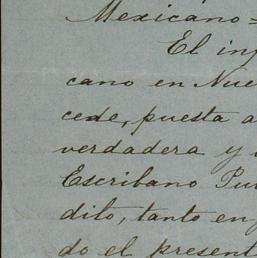 Mexicano=
El inf
cano en Nue
cede, puesta a
verdadera y
Escribano Pu
dito, tanto en
do el present